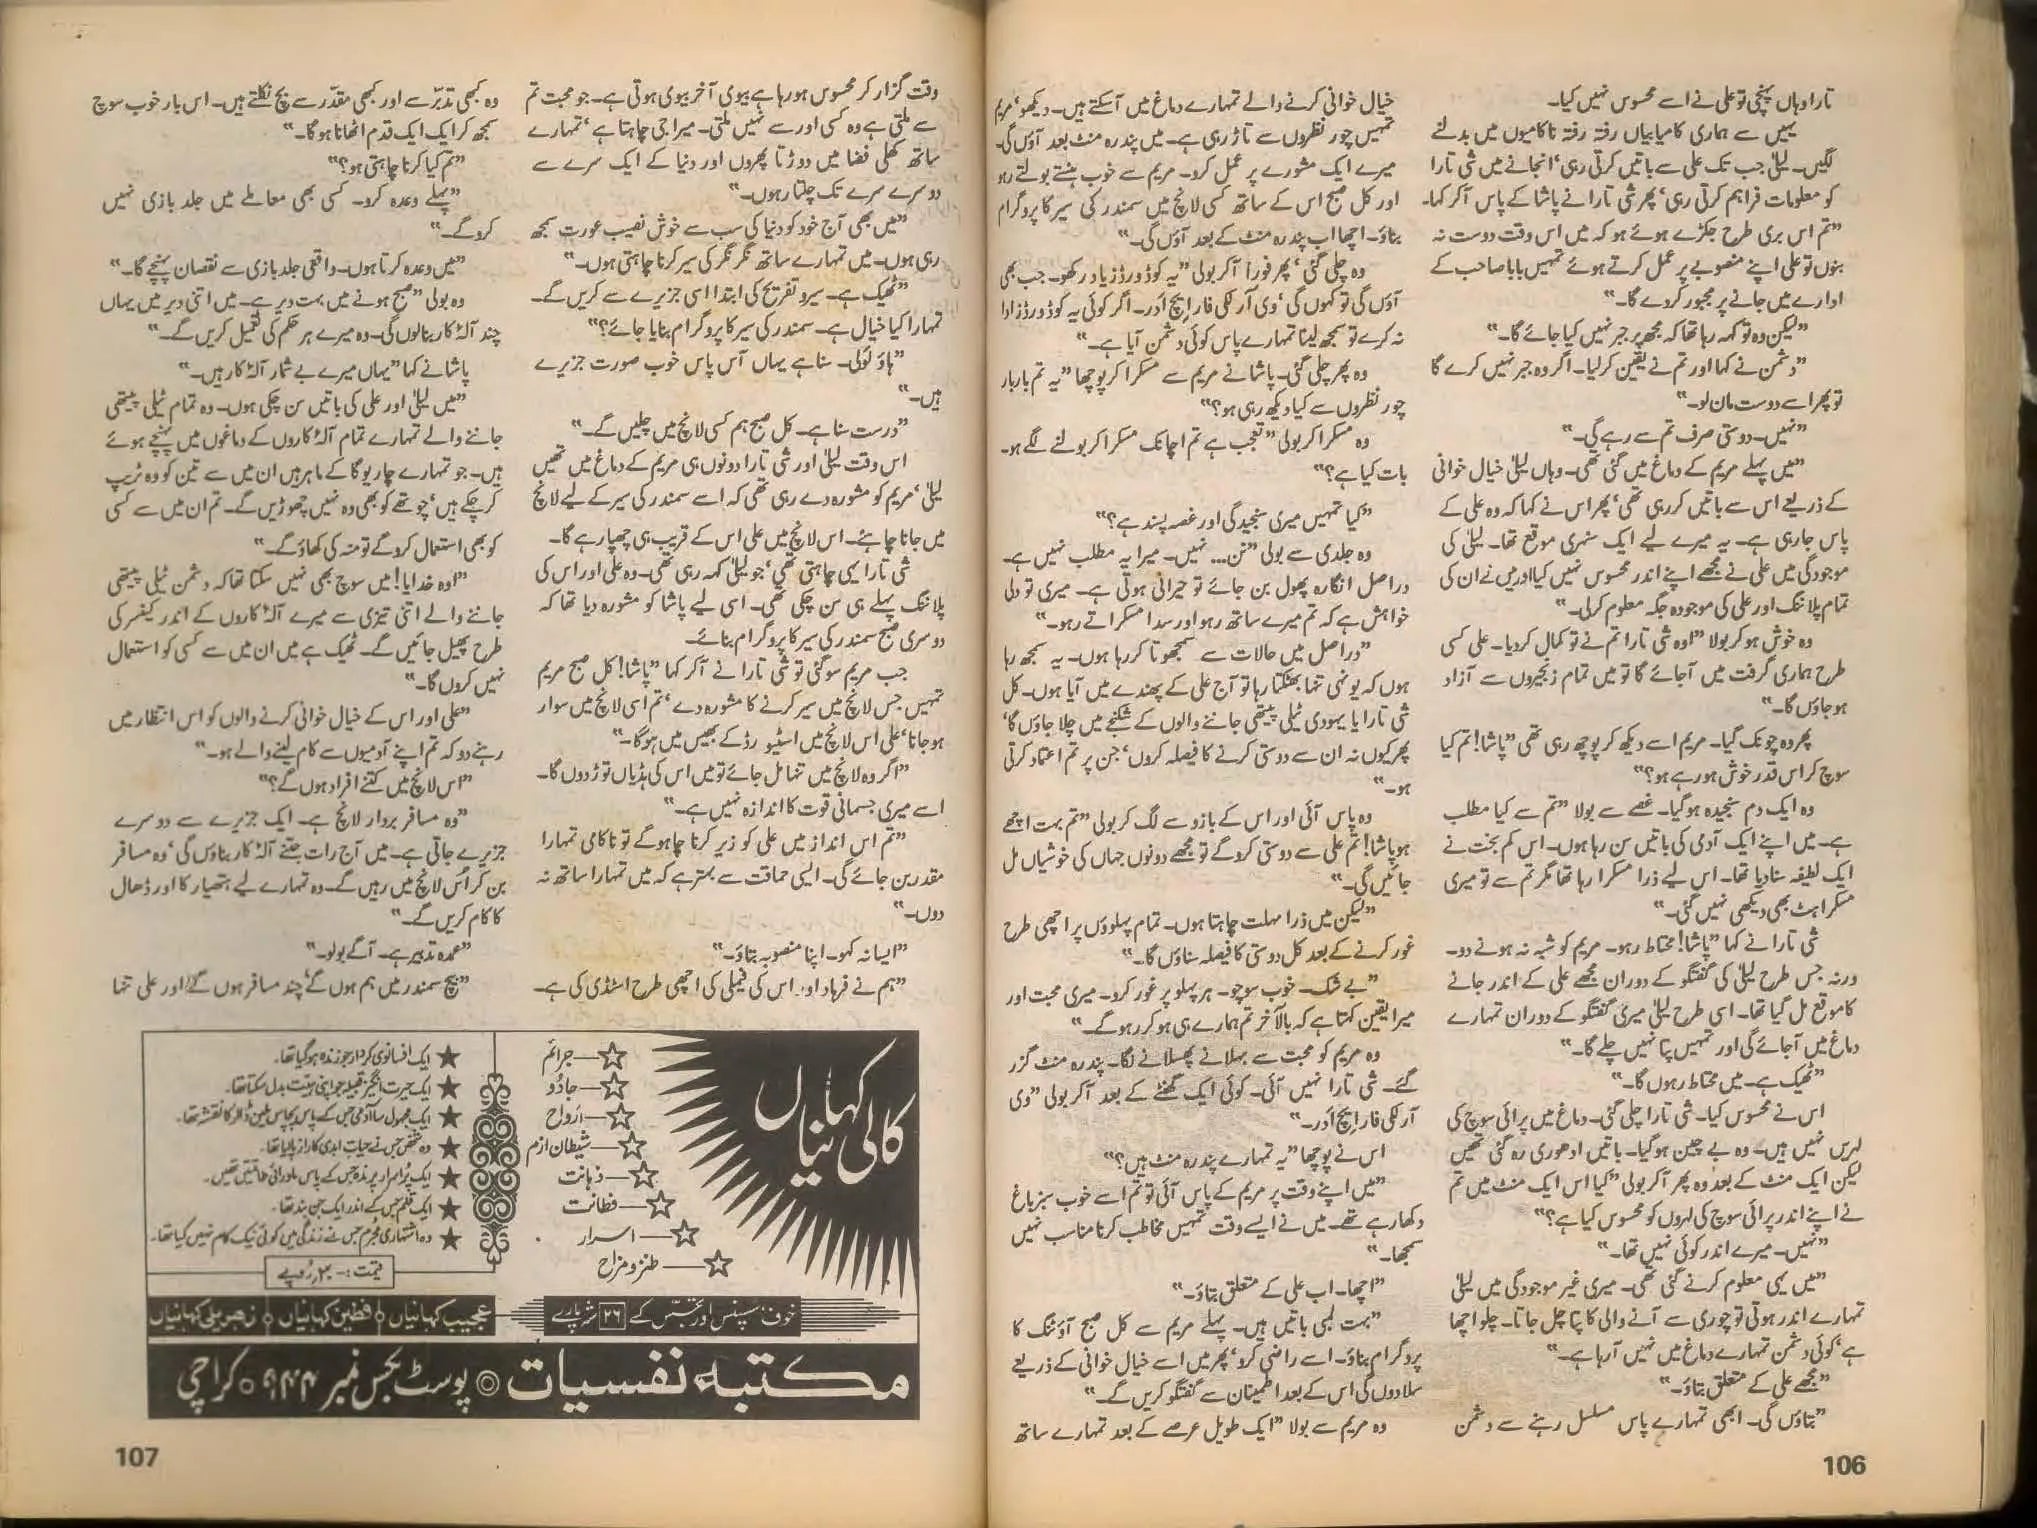 تارا وہاں پہنچی تو علی نے اسے محسوس نہیں کیا۔
یہیں سے ہماری کامیابیاں رفتہ رفتہ ناکامیوں میں بدلنے
لگیں۔ لیلیٰ جب تک علی سے باتیں کرتی رہی' انجانے میں شی تارا
کو معلومات فراہم کرتی رہی' پھر شی تارا نے پاشا کے پاس آکر کہا۔
"تم اس بری طرح جکڑے ہوئے ہو کہ میں اس وقت دوست نہ
بنوں تو علی اپنے منصوبے پر عمل کرتے ہوئے تمہیں بابا صاحب کے
ادارے میں جانے پر مجبور کردے گا۔"
"لیکن وہ تو کہہ رہا تھا کہ مجھ پر جبر نہیں کیا جائے گا۔"
"دشمن نے کہا اور تم نے یقین کرلیا۔ اگر وہ جبر نہیں کرے گا
تو پھر اسے دوست مان لو۔"
"نہیں۔ دوستی صرف تم سے رہے گی۔"
"میں پہلے مریم کے دماغ میں گئی تھی۔ وہاں لیلیٰ خیال خوانی
کے ذریعے اس سے باتیں کررہی تھی' پھر اس نے کہا کہ وہ علی کے
پاس جارہی ہے۔ یہ میرے لیے ایک سنہری موقع تھا۔ لیلیٰ کی
موجودگی میں علی نے مجھے اپنے اندر محسوس نہیں کیا اور میں نے ان کی
تمام پلاننگ اور علی کی موجودہ جگہ معلوم کرلی۔"
وہ خوش ہو کر بولا "اوہ شی تارا تم نے تو کمال کردیا۔ علی کسی
طرح ہماری گرفت میں آجائے گا تو میں تمام زنجیروں سے آزاد
ہوجاؤں گا۔"
پھر وہ چونک گیا۔ مریم اسے دیکھ کر پوچھ رہی تھی "پاشا! تم کیا
سوچ کر اس قدر خوش ہورہے ہو؟"
وہ ایک دم سنجیدہ ہوگیا۔ غصے سے بولا "تم سے کیا مطلب
ہے۔ میں اپنے ایک آدمی کی باتیں سن رہا ہوں۔ اس کم بخت نے
ایک لطیفہ سنادیا تھا۔ اس لیے ذرا مسکرا رہا تھا مگر تم سے تو میری
مسکراہٹ بھی دیکھی نہیں گئی۔"
شی تارا نے کہا "پاشا! محتاط رہو۔ مریم کو شبہ نہ ہونے دو۔
ورنہ جس طرح لیلیٰ کی گفتگو کے دوران مجھے علی کے اندر جانے
کا موقع مل گیا تھا۔ اسی طرح لیلیٰ میری گفتگو کے دوران تمہارے
دماغ میں آجائے گی اور تمہیں پتا نہیں چلے گا۔"
"ٹھیک ہے۔ میں محتاط رہوں گا۔"
اس نے محسوس کیا۔ شی تارا چلی گئی۔ دماغ میں پرائی سوچ کی
لہریں نہیں ہیں۔ وہ بے چین ہوگیا۔ باتیں ادھوری رہ گئی تھیں
لیکن ایک منٹ کے بعد وہ پھر آکر بولی "کیا اس ایک منٹ میں تم
نے اپنے اندر پرائی سوچ کی لہروں کو محسوس کیا ہے؟"
"نہیں۔ میرے اندر کوئی نہیں تھا۔"
"میں یہی معلوم کرنے گئی تھی۔ میری غیر موجودگی میں لیلیٰ
تمہارے اندر ہوتی تو چوری سے آنے والی کا پتا چل جاتا۔ چلو اچھا
ہے' کوئی دشمن تمہارے دماغ میں نہیں آرہا ہے۔"
"مجھے علی کے متعلق بتاؤ۔"
"بتاؤں گی۔ ابھی تمہارے پاس مسلسل رہنے سے دشمن
خیال خوانی کرنے والے تمہارے دماغ میں آسکتے ہیں۔ دیکھو' مریم
تمہیں چور نظروں سے تاڑ رہی ہے۔ میں پندرہ منٹ بعد آؤں گی۔
میرے ایک مشورے پر عمل کرو۔ مریم سے خوب ہنستے بولتے رہو
اور کل صبح اس کے ساتھ کسی لانچ میں سمندر کی سیر کا پروگرام
بناؤ۔ اچھا اب پندرہ منٹ کے بعد آؤں گی۔"
وہ چلی گئی' پھر فوراً آکر بولی "یہ کوڈ ورڈز یاد رکھو۔ جب بھی
آؤں گی تو کہوں گی' وی آر لکی فار ایچ ادَر۔ اگر کوئی یہ کوڈ ورڈز ادا
نہ کرے تو سمجھ لینا تمہارے پاس کوئی دشمن آیا ہے۔"
وہ پھر چلی گئی۔ پاشا نے مریم سے مسکرا کر پوچھا "یہ تم باربار
چور نظروں سے کیا دیکھ رہی ہو؟"
وہ مسکرا کر بولی "تعجب ہے تم اچانک مسکرا کر بولنے لگے ہو۔
بات کیا ہے؟"
"کیا تمہیں میری سنجیدگی اور غصہ پسند ہے؟"
وہ جلدی سے بولی "نن... نہیں۔ میرا یہ مطلب نہیں ہے۔
دراصل انگارہ پھول بن جائے تو حیرانی ہوتی ہے۔ میری تو دلی
خواہش ہے کہ تم میرے ساتھ رہو اور سدا مسکراتے رہو۔"
"دراصل میں حالات سے سمجھوتا کررہا ہوں۔ یہ سمجھ رہا
ہوں کہ یونہی تنہا بھٹکتا رہا تو آج علی کے پھندے میں آیا ہوں۔ کل
شی تارا یا یہودی ٹیلی پیتھی جاننے والوں کے شکنجے میں چلا جاؤں گا'
پھر کیوں نہ ان سے دوستی کرنے کا فیصلہ کروں' جن پر تم اعتماد کرتی
ہو۔"
وہ پاس آئی اور اس کے بازو سے لگ کر بولی "تم بہت اچھے
ہو پاشا! تم علی سے دوستی کروگے تو مجھے دونوں جہاں کی خوشیاں مل
جائیں گی۔"
"لیکن میں ذرا مہلت چاہتا ہوں۔ تمام پہلوؤں پر اچھی طرح
غور کرنے کے بعد کل دوستی کا فیصلہ سناؤں گا۔"
"بے شک۔ خوب سوچو۔ ہر پہلو پر غور کرو۔ میری محبت اور
میرا یقین کہتا ہے کہ بالآخر تم ہمارے ہی ہو کر رہوگے۔"
وہ مریم کو محبت سے بہلانے پھسلانے لگا۔ پندرہ منٹ گزر
گئے۔ شی تارا نہیں آئی۔ کوئی ایک گھنٹے کے بعد آکر بولی "وی
آر لکی فار ایچ ادَر۔"
اس نے پوچھا "یہ تمہارے پندرہ منٹ ہیں؟"
"میں اپنے وقت پر مریم کے پاس آئی تو تم اسے خوب سبز باغ
دکھارہے تھے۔ میں نے ایسے وقت تمہیں مخاطب کرنا مناسب نہیں
سمجھا۔"
"اچھا۔ اب علی کے متعلق بتاؤ۔"
"بہت لمبی باتیں ہیں۔ پہلے مریم سے کل صبح آؤٹنگ کا
پروگرام بناؤ۔ اسے راضی کرو' پھر میں اسے خیال خوانی کے ذریعے
سلادوں گی اس کے بعد اطمینان سے گفتگو کریں گے۔"
وہ مریم سے بولا "ایک طویل عرصے کے بعد تمہارے ساتھ
106
وقت گزار کر محسوس ہورہا ہے بیوی آخر بیوی ہوتی ہے۔ جو محبت تم
سے ملتی ہے وہ کسی اور سے نہیں ملتی۔ میرا جی چاہتا ہے' تمہارے
ساتھ کھلی فضا میں دوڑتا پھروں اور دنیا کے ایک سرے سے
دوسرے سرے تک چلتا رہوں۔"
"میں بھی آج خود کو دنیا کی سب سے خوش نصیب عورت سمجھ
رہی ہوں۔ میں تمہارے ساتھ نگر نگر کی سیر کرنا چاہتی ہوں۔"
"ٹھیک ہے۔ سیرو تفریح کی ابتدا اسی جزیرے سے کریں گے۔
تمہارا کیا خیال ہے۔ سمندر کی سیر کا پروگرام بنایا جائے؟"
"ہاؤ لَولی۔ سنا ہے یہاں آس پاس خوب صورت جزیرے
ہیں۔"
"درست سنا ہے۔ کل صبح ہم کسی لانچ میں چلیں گے۔"
اس وقت لیلیٰ اور شی تارا دونوں ہی مریم کے دماغ میں تھیں
لیلیٰ' مریم کو مشورہ دے رہی تھی کہ اسے سمندر کی سیر کے لیے لانچ
میں جانا چاہئے۔ اس لانچ میں علی اس کے قریب ہی چھپا رہے گا۔
شی تارا یہی چاہتی تھی' جو لیلیٰ کہہ رہی تھی۔ وہ علی اور اس کی
پلاننگ پہلے ہی سن چکی تھی۔ اسی لیے پاشا کو مشورہ دیا تھا کہ
دوسری صبح سمندر کی سیر کا پروگرام بنائے۔
جب مریم سوگئی تو شی تارا نے آکر کہا "پاشا! کل صبح مریم
تمہیں جس لانچ میں سیر کرنے کا مشورہ دے' تم اسی لانچ میں سوار
ہوجانا' علی اس لانچ میں اسٹیورڈ کے بھیس میں ہوگا۔"
"اگر وہ لانچ میں تنہا مل جائے تو میں اس کی ہڈیاں توڑ دوں گا۔
اسے میری جسمانی قوت کا اندازہ نہیں ہے۔"
"تم اس انداز میں علی کو زیر کرنا چاہوگے تو ناکامی تمہارا
مقدر بن جائے گی۔ ایسی حماقت سے بہتر ہے کہ میں تمہارا ساتھ نہ
دوں۔"
"ایسا نہ کہو۔ اپنا منصوبہ بتاؤ۔"
"ہم نے فرہاد اور اس کی فیملی کی اچھی طرح اسٹڈی کی ہے۔
وہ کبھی تدبّر سے اور کبھی مقدّر سے بچ نکلتے ہیں۔ اس بار خوب سوچ
سمجھ کر ایک ایک قدم اٹھانا ہوگا۔"
"تم کیا کرنا چاہتی ہو؟"
"پہلے وعدہ کرو۔ کسی بھی معاملے میں جلد بازی نہیں
کروگے۔"
"میں وعدہ کرتا ہوں۔ واقعی جلد بازی سے نقصان پہنچے گا۔"
وہ بولی "صبح ہونے میں بہت دیر ہے۔ میں اتنی دیر میں یہاں
چند آلۂ کار بنالوں گی۔ وہ میرے ہر حکم کی تعمیل کریں گے۔"
پاشا نے کہا "یہاں میرے بے شمار آلۂ کار ہیں۔"
"میں لیلیٰ اور علی کی باتیں سن چکی ہوں۔ وہ تمام ٹیلی پیتھی
جاننے والے تمہارے تمام آلۂ کاروں کے دماغوں میں پہنچے ہوئے
ہیں۔ جو تمہارے چار یوگا کے ماہر ہیں ان میں سے تین کو وہ ٹریپ
کرچکے ہیں' چوتھے کو بھی وہ نہیں چھوڑیں گے۔ تم ان میں سے کسی
کو بھی استعمال کروگے تو منہ کی کھاؤگے۔"
"اوہ خدایا! میں سوچ بھی نہیں سکتا تھا کہ دشمن ٹیلی پیتھی
جاننے والے اتنی تیزی سے میرے آلۂ کاروں کے اندر کینسر کی
طرح پھیل جائیں گے۔ ٹھیک ہے میں ان میں سے کسی کو استعمال
نہیں کروں گا۔"
"علی اور اس کے خیال خوانی کرنے والوں کو اس انتظار میں
رہنے دو کہ تم اپنے آدمیوں سے کام لینے والے ہو۔"
"اس لانچ میں کتنے افراد ہوں گے؟"
"وہ مسافر بردار لانچ ہے۔ ایک جزیرے سے دوسرے
جزیرے جاتی ہے۔ میں آج رات جتنے آلۂ کار بناؤں گی' وہ مسافر
بن کر اُس لانچ میں رہیں گے۔ وہ تمہارے لیے ہتھیار کا اور ڈھال
کا کام کریں گے۔"
"عمدہ تدبیر ہے۔ آگے بولو۔"
"بیچ سمندر میں ہم ہوں گے' چند مسافر ہوں گے اور علی تنہا
کالی کہانیاں
☆—جرائم
☆—جادُو
☆—ارواح
☆—شیطان ازم
☆—ذہانت
☆—فطانت
☆—اسرار
☆—طنز و مزاح
★ ایک افسانوی کردار جو زندہ ہوگیا تھا۔
★ ایک حیرت انگیز قبیلہ جو اپنی ہیئت بدل سکتا تھا۔
★ ایک مجہول سا آدمی جس کے پاس پچاس ملین ڈالر کا نقشہ تھا۔
★ وہ شخص جس نے حیاتِ ابدی کا راز پالیا تھا۔
★ ایک پُراسرار پرندہ جس کے پاس ماورائی طاقتیں تھیں۔
★ ایک قلم جس کے اندر ایک جن بند تھا۔
★ وہ اشتہاری مجُرم جس نے زندگی میں کوئی نیک کام نہیں کیا تھا۔
قیمت :- ۲۰ رُوپے
خوف، سسپنس اور تجسّس کے ۳۶ شہ پارے
عجیب کہانیاں ○ فطین کہانیاں ○ زہریلی کہانیاں
مکتبہ نفسیات ◎ پوسٹ بکس نمبر ۹۴۴ ○ کراچی
107